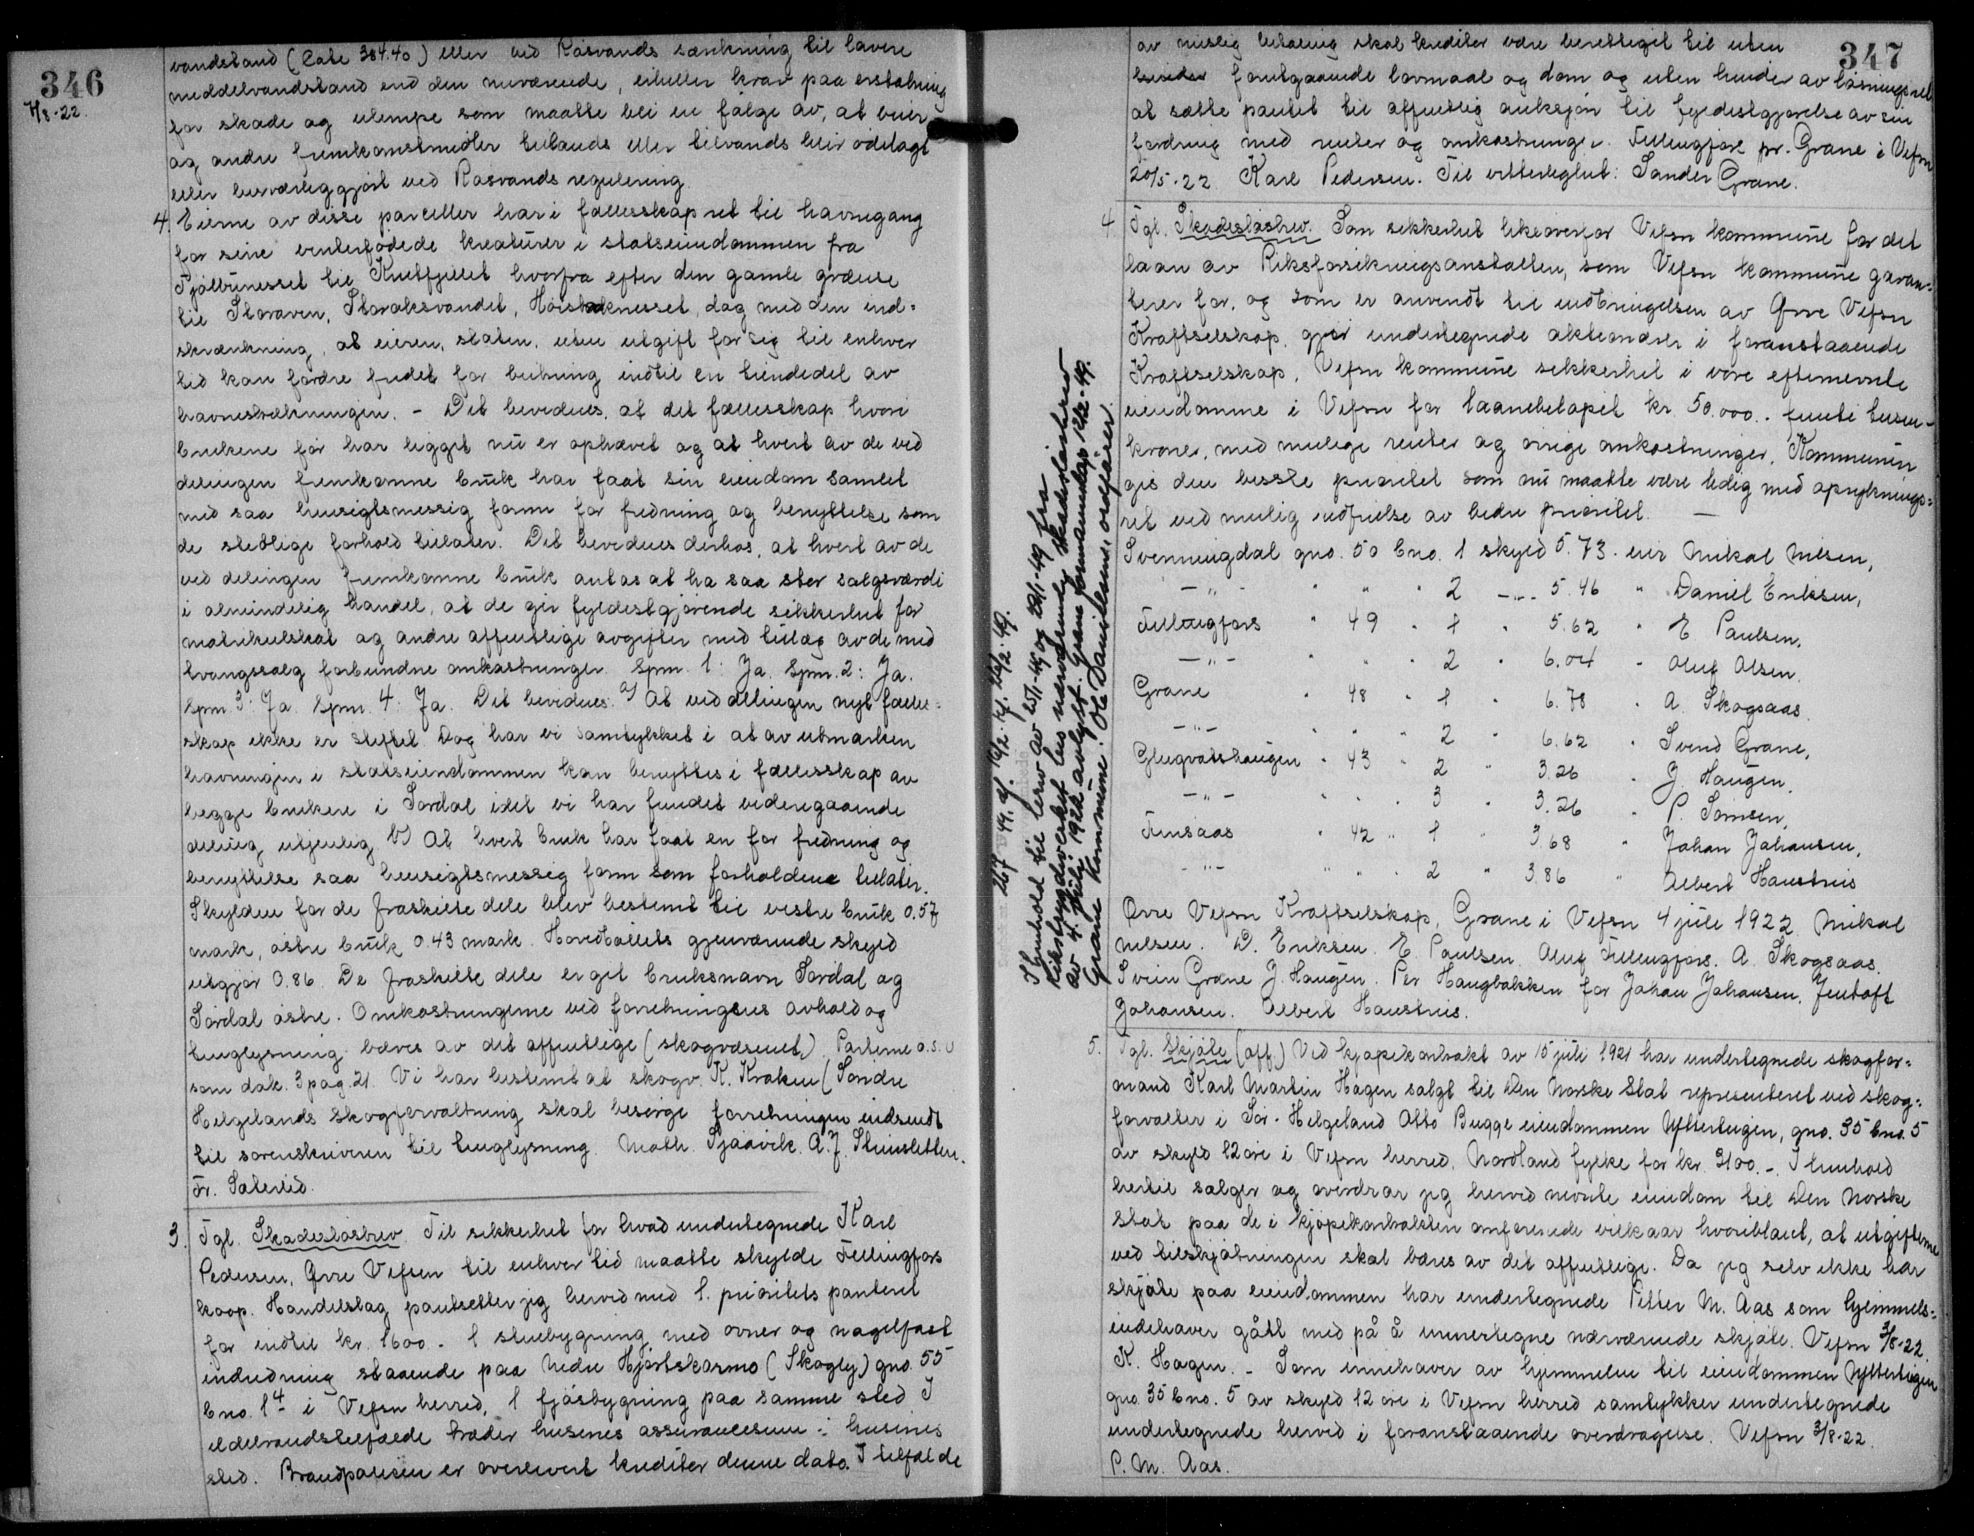 346
7/8-22.
vandstand (Cote 384.40) eller ved Rösvands sænkning til lavere
middelvandstand end den nuværende, eiheller krav paa erstatning
for skade og ulempe som maatte bli en følge av, at veier
og andre fremkomstmidler tillands eller tilvands blir ödelagt
eller besværliggjort ved Rösvands regulering.
4. Eierne av disse parceller har i fællesskap ret til havnegang
for sine vinterfödde kreaturer i statseiendommen fra
Fjölbunesset til Knutfjellet hvorfra efter den gamle grænse
til Storaven, Storaksvandet, Höistaknesset, dog med den ind=
skrænkning, at eieren, staten, uten utgift for sig til enhver
tid kan fordre fredet for beitning indtil en tiendedel av
havnestrækningen. - Det bevidnes, at det fællesskap hvori
brukene för har ligget nu er ophævet og at hvert av de ved
delingen fremkomne bruk har faat sin eiendom samlet
med saa hensigtsmessig form for fredning og benyttelse som
de stedlige forhold tillater. Det bevidnes derhos, at hvert av de
ved delingen fremkomne bruk antas at ha saa stor salgsværdi
i almindelig handel, at de gir fyldestgjörende sikkerhet for
matrikulskat og andre offentlige avgifter med tillæg av de med
tvangssalg forbundne omkostninger. Spm. 1: Ja. Spm. 2: Ja.
Spm 3: Ja. Spm. 4: Ja. Det bevidnes: a) At ved delingen nyt fælles=
skap ikke er stiftet. Dog har vi samtykket i at av utmarken
havningen i statseiendommen kan benyttes i fællesskap av
begge brukere i Sördal idet vi har fundet videregaaende
deling utjenlig b) At hvert bruk har faat en for fredning og
benyttelse saa hensigtsmessig form som forholdene tillater.
Skylden for de fraskilte dele blev bestemt til vestre bruk 0.57
mark, östre bruk 0.43 mark. Hovedbölets gjenværende skyld
utgjör 0.86. De fraskilte dele er git bruksnavn Sördal og
Sördal östre. Omkostningerne ved forretningens avhold og
tinglysning bæres av det offentlige (skogvæsenet). Parterne o.s.v.
som dok. 3 pag. 21. Vi har bestemt at skogv. K. Kraken (Söndre
Helgelands skogforvaltning skal besörge forretningen indsendt
til sorenskriveren til tinglysning. Math. Sjaavik. A.J. Stuvsletten.
Fr. Sæterlid.
3. Tgl. Skadeslösbrev. Til sikkerhet for hvad undertegnede Karl
Pedersen, Övre Vefsen til enhver tid maatte skylde Fellingfors
koop. Handelslag pantsetter jeg herved med 1. prioritets panteret
for indtil kr. 1600.- 1 stuebygning med ovner og nagelfast
indredning staaende paa Nedre Hjortskarmo (Skogly) gno. 55
bno. 14 i Vefsn herred, 1 fjösbygning paa samme sted. I
ildebrandstilfælde træder husenes assurancesum i husenes
sted. Brandpolisen er overlevert kreditor denne dato. I tilfælde
347
av mislig betaling skal kreditor være berettiget til uten
forutgaaende lovmaal og dom og uten hinder av lösningsret
at sætte pantet til offentlig auksjon til fyldestgjörelse av sin
fordring med renter og omkostninger. Fellingfors pr. Grane i Vefsn
20/5-22. Karl Pedersen. Til vitterlighet: Sander Grane.
4. Tgl. Skadeslösbrev. Som sikkerhet likeoverfor Vefsn kommune for det
laan av Riksforsikringsanstalten, som Vefsn kommune garan=
terer for, og som er anvendt til utbringelsen av Övre Vefsn
Kraftselskap, gir undertegnede aktionærer i foranstaaende
Kraftselskap, Vefsn kommune sikkerhet i vore efternevnte
eiendomme i Vefsn for laanebelöpet kr. 50.000.- femti tusen-
kroner, med mulige renter og övrige omkostninger. Kommunen
gis den beste prioritet som nu maatte være ledig med opryknings=
ret ved mulig indfrielse av bedre prioritet. —
Svenningdal gno. 50 bno. 1 skyld 5.73. eier Mikal Nilsen,
-"- " " " 2 -"- 5.46 " Daniel Eriksen,
Fellingfors " 49 " 1 " 5.62 " E Paulsen,
-"- " " " 2 " 6.04 " Oluf Olsen.
Grane " 48 " 1 " 6.78 " A. Skogsaas.
-"- " " " 2 " 6.62 " Svend Grane,
Glugvatshaugen " 43 " 2 " 3.26 " J Haugen,
-"- " " " 3 " 3.26 " P. Simsen,
Finsaas " 42 " 1 " 3.68 " Johan Johansen,
-"- " " " 2 " 3.86 " Albert Haustreis
Övre Vefsn Kraftselskap, Grane i Vefsn 4 juli 1922. Mikal
Nilsen. D. Eriksen. E. Paulsen. Oluf Fellingfors. A. Skogsaas.
Svein Grane. J. Haugen. Per Haugbakken for Johan Johansen, Jentoft
Johansen. Albert Haustreis.
I henhold til lerov av 25/1-49 og 28/1-49 fra
av 4. juli 1922 avlyst. Grane formannskap 12/2-49.
Grane kommune. Ole Danielsen, ordförer.
267 49. 16/2. 22/2-49.
5. Tgl. Skjöte (off.) Ved kjöpekontrakt av 15 juli 1921 har undertegnede skogfor=
mand Karl Martin Hagen solgt til Den Norske Stat representeret ved skog=
forvalter i Sör-Helgeland Otto Bugge eiendommen Yttertiugen, gno. 35 bno. 5
av skyld 12 öre i Vefsn herred, Nordland fylke for kr. 3100.- I henhold
hertil sælger og overdrar jeg herved nevnte eiendom til Den Norske
stat paa de i kjöpekontrakten anförende vilkaar hvoriblant, at utgifterne
ved tilskjötningen skal bæres av det offentlige. Da jeg selv ikke har
skjöte paa eiendommen har undertegnede Petter M. Aas som hjemmels=
indehaver gått med på å undertegne nærværende skjöte. Vefsn 3/8-22.
K. Hagen. - Som innehaver av hjemmelen til eiendommen Yttertiugen
gno. 35 bno. 5 av skyld 12 öre i Vefsn herred samtykker undertegnede
undertegnede herved i foranstaaende overdragelse. Vefsn 3/8-22.
P. M. Aas.